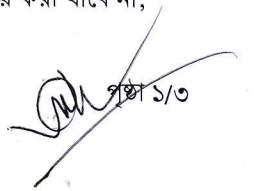 করা যাবে না,
পৃষ্ঠা ১/৩